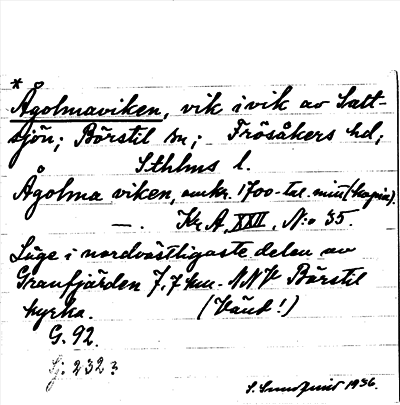 * Ågolmaviken, vik i vik av Salt-
sjön; Börstil sn; Frösåkers hd;
Sthlms l.
Ågolma viken, omkr. 1700-tal. mitt (kopia).
—. Kr. A. XXII, N:o 35.
Läge i nordvästligaste delen av
Granfjärden 7,7 km. NNV Börstil
kyrka. (Vänd!)
G. 92.
Lj: 232
S. 1936.